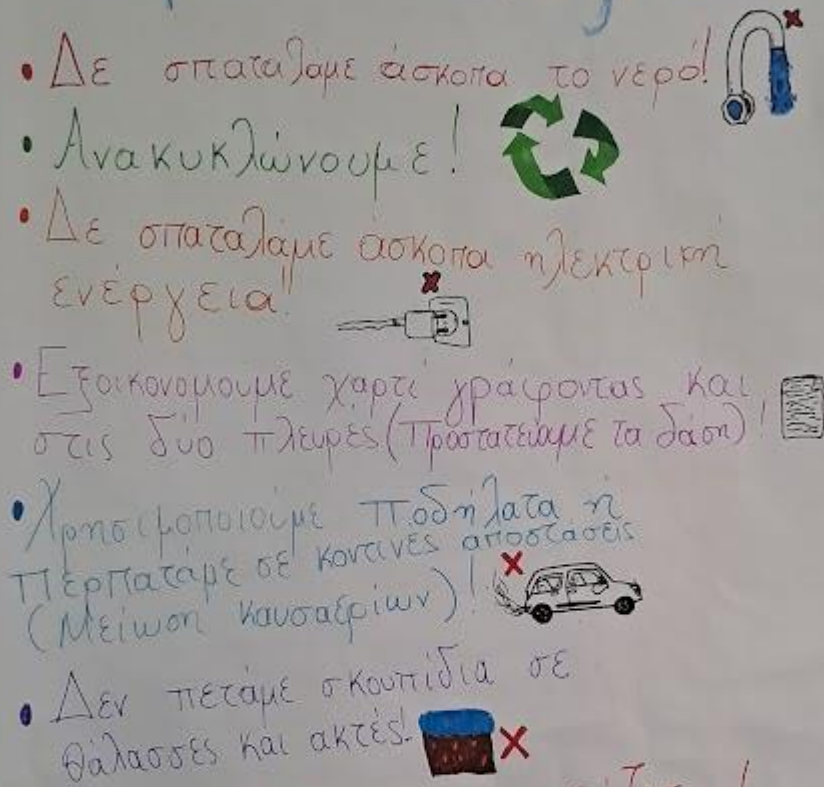 • Δε σπαταλαμε άσκοπα το νερό!
• Ανακυκλώνουμε!
• Δε σπαταλάμε άσκοπα ηλεκτρική
ενέργεια!!
• Εξοικονομουμε χαρτί γράφοντας και
στις δύο πλευρές (Προστατεύαμε τα δάση)!
• Χρησιμοποιούμε ποδήλατα ή
περπατάμε σε κοντινές αποστάσεις
(Μείωση καυσαερίων)!
• Δεν πετάμε σκουπίδια σε
θάλασσες και ακτές!